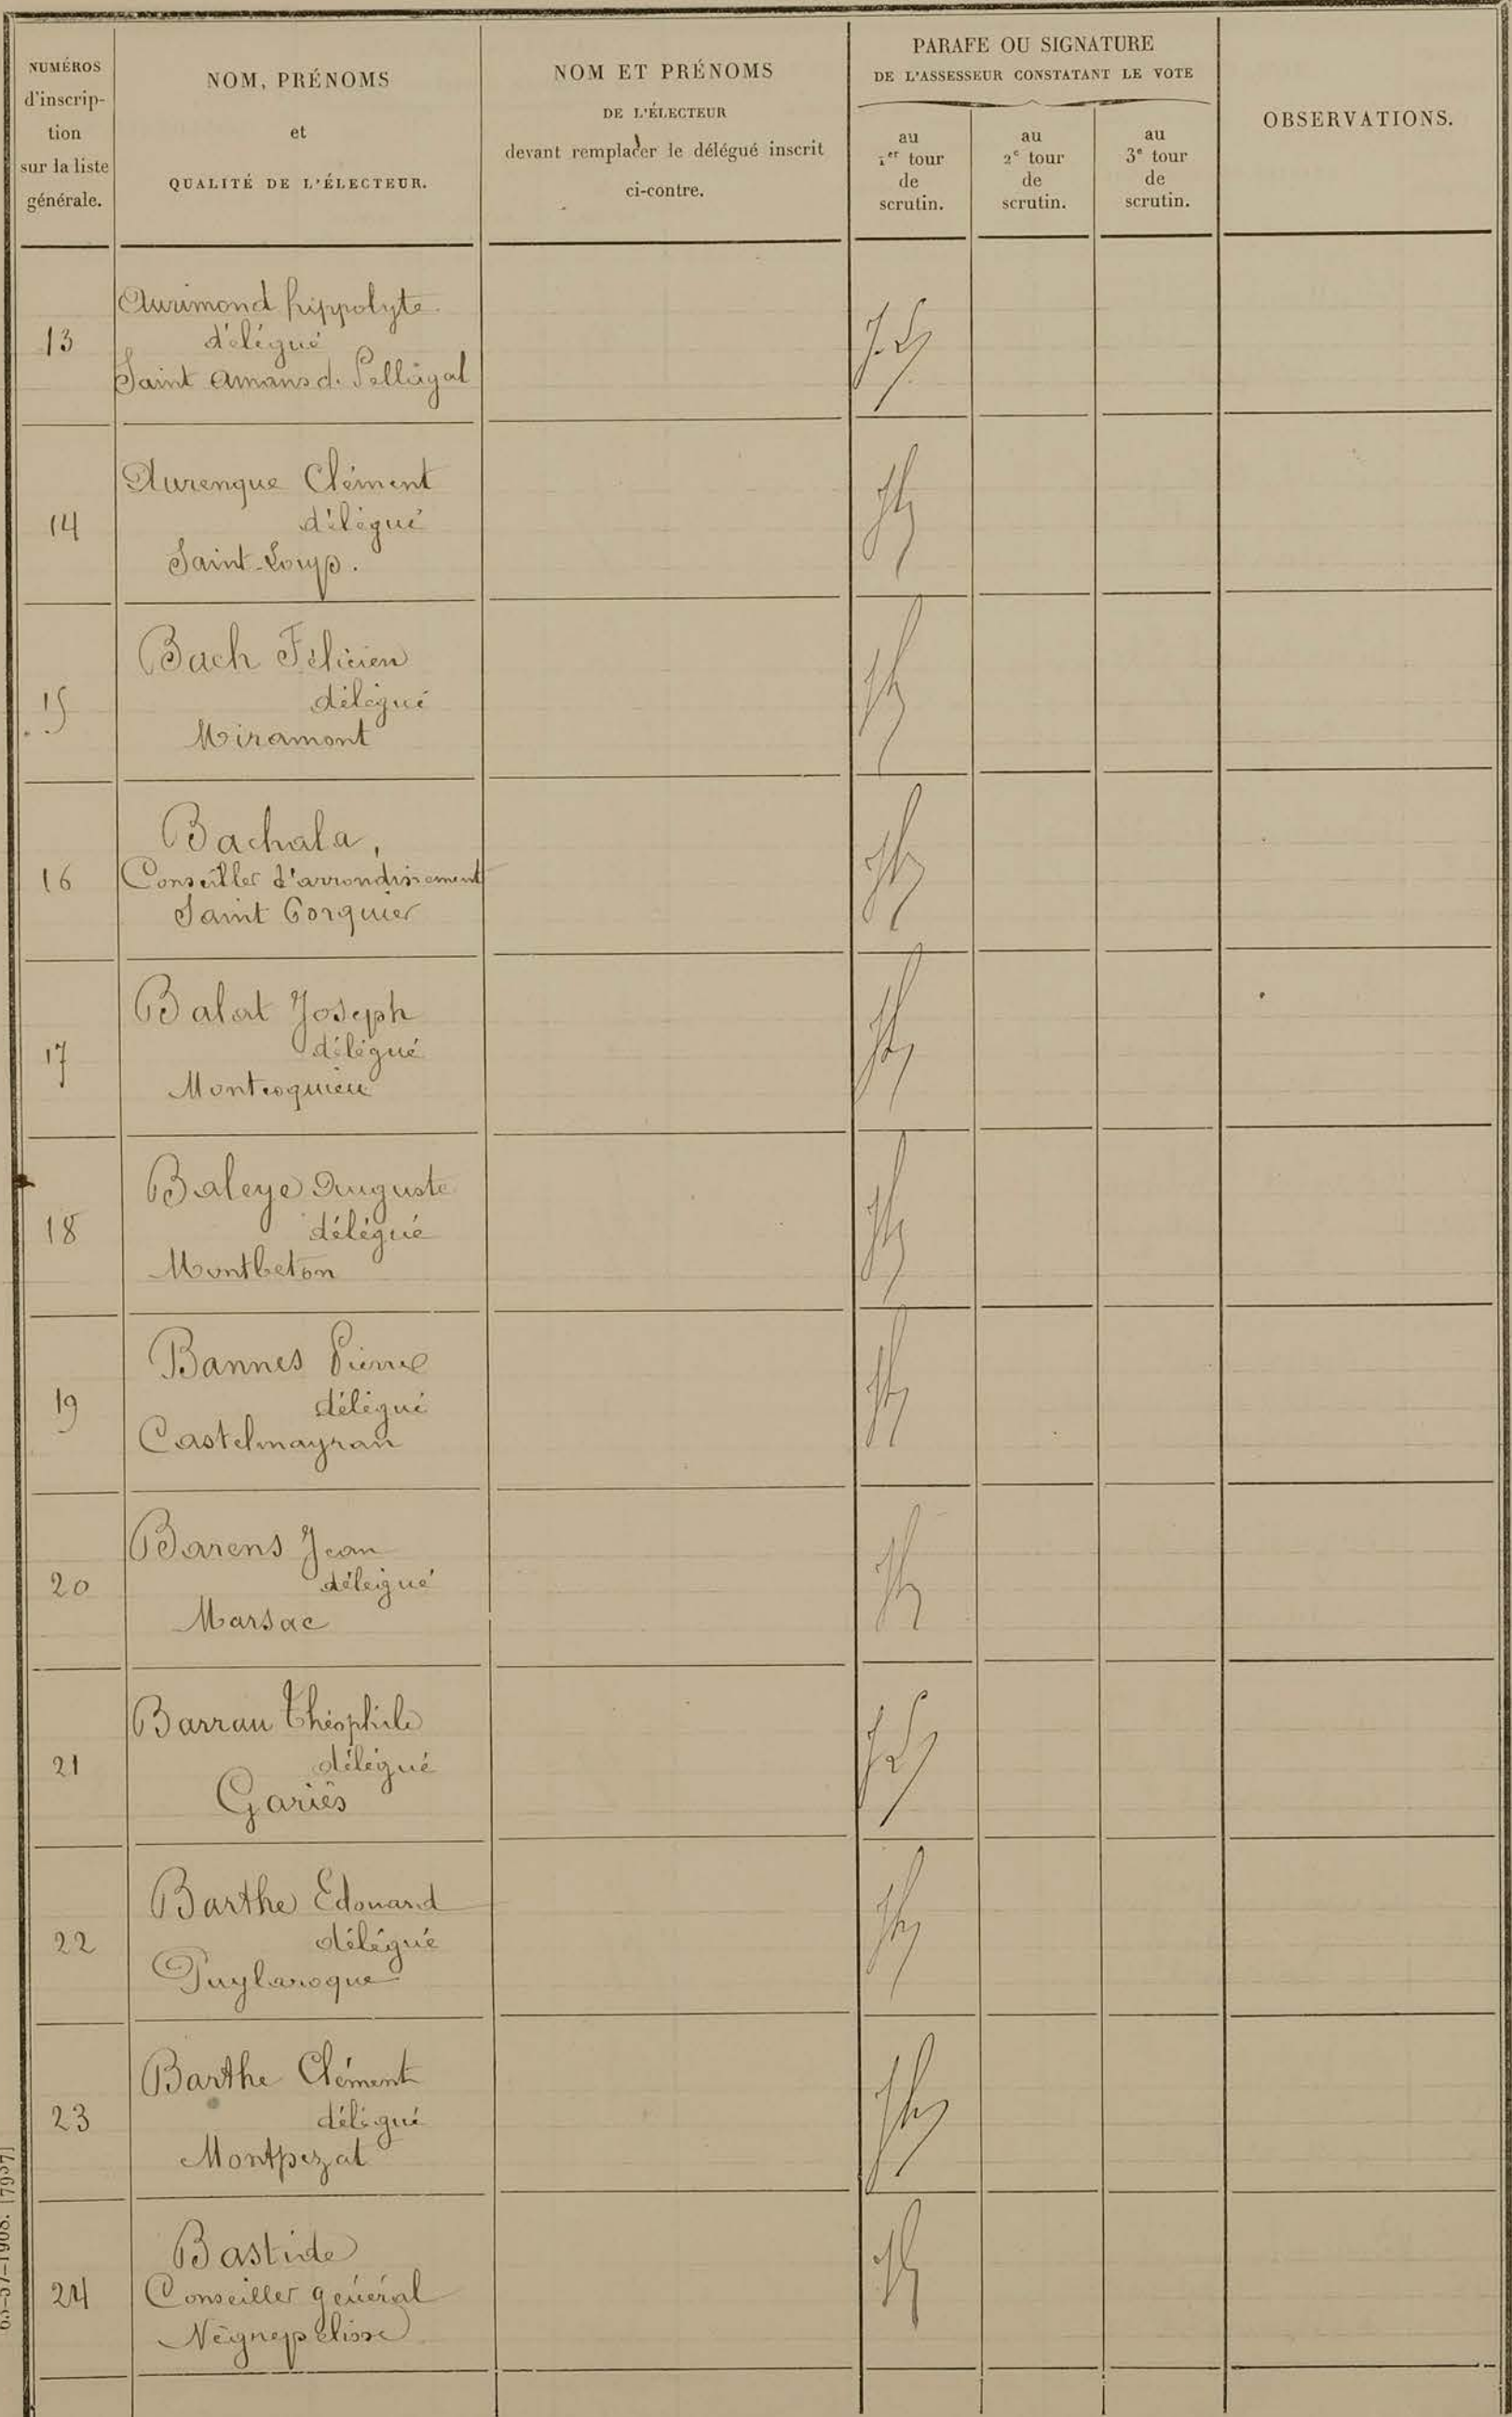 NUMÉROS
d'inscrip-
tion
sur la liste
générale.
NOM, PRÉNOMS
et
QUALITÉ DE L'ÉLECTEUR.
NOM ET PRÉNOMS
DE L'ÉLECTEUR
devant remplacer le délégué inscrit
ci-contre.
PARAFE OU SIGNATURE
DE L'ASSESSEUR CONSTATANT LE VOTE
au
1er tour
de
scrutin.
au
2e tour
de
scrutin.
au
3e tour
de
scrutin.
OBSERVATIONS.
13
Aurimond hippolyte
délégué
Saint Amans de Pellagal
14
Aurenque Clément
délégué
Saint-Loup.
15
Bach Félicien
délégué
Miramont
16
Bachala,
Conseiller d'arrondissement
Saint Porquier
17
Balat Joseph
délégué
18
Baleye Auguste
délégué
Montbeton
19
Bannes Pierre
délégué
Castelmayran
20
Barens Jean
délégué
Marsac
21
Barrau Théophile
délégué
Gariès
22
Barthe Edouard
délégué
Puylaroque
23
Barthe Clément
délégué
Montpezat
24
Bastide
Conseiller général
Nègrepelisse
63-57-1908. [7957]